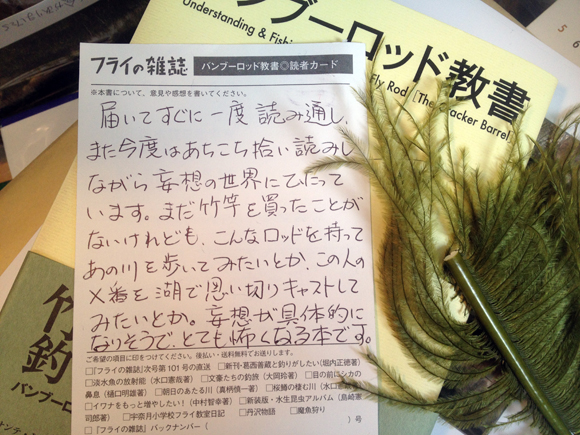 バンブーロッド教書
Understanding & Fishi
Fly Rod [The Cracker Barrel]
フライの雑誌
バンブーロッド教書◎読者カード
※本書について、意見や感想を書いてください。
届いてすぐに一度読み通し、
また今度はあちこち拾い読みし
ながら妄想の世界にひたって
います。まだ竹竿を買ったことが
ないけれども、こんなロッドを持って
あの川を歩いてみたいとか、この人の
×番を湖で思い切りキャストして
みたいとか。妄想が具体的に
なりそうで、とても怖くなる本です。
ご希望の項目に印をつけてください。後払い・送料無料でお送りします。
□『フライの雑誌』次号第101号の直送 □新刊・葛西善蔵と釣りがしたい(堀内正徳著)
□淡水魚の放射能(水口憲哉著) □文豪たちの釣旅(大岡玲著) □目の前にシカの
鼻息(樋口明雄著) □朝日のあたる川(真柄慎一著) □桜鱒の棲む川(水口憲哉著)
□イワナをもっと増やしたい!(中村智幸著) □新装版・水生昆虫アルバム(島崎憲
司郎著) □宇奈月小学校フライ教室日記 □丹沢物語 □魔魚狩り
□『フライの雑誌』バックナンバー( )号
竹
釣
バンブーロ